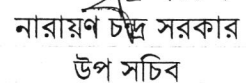 নারায়ণ চন্দ্র সরকার
উপ সচিব